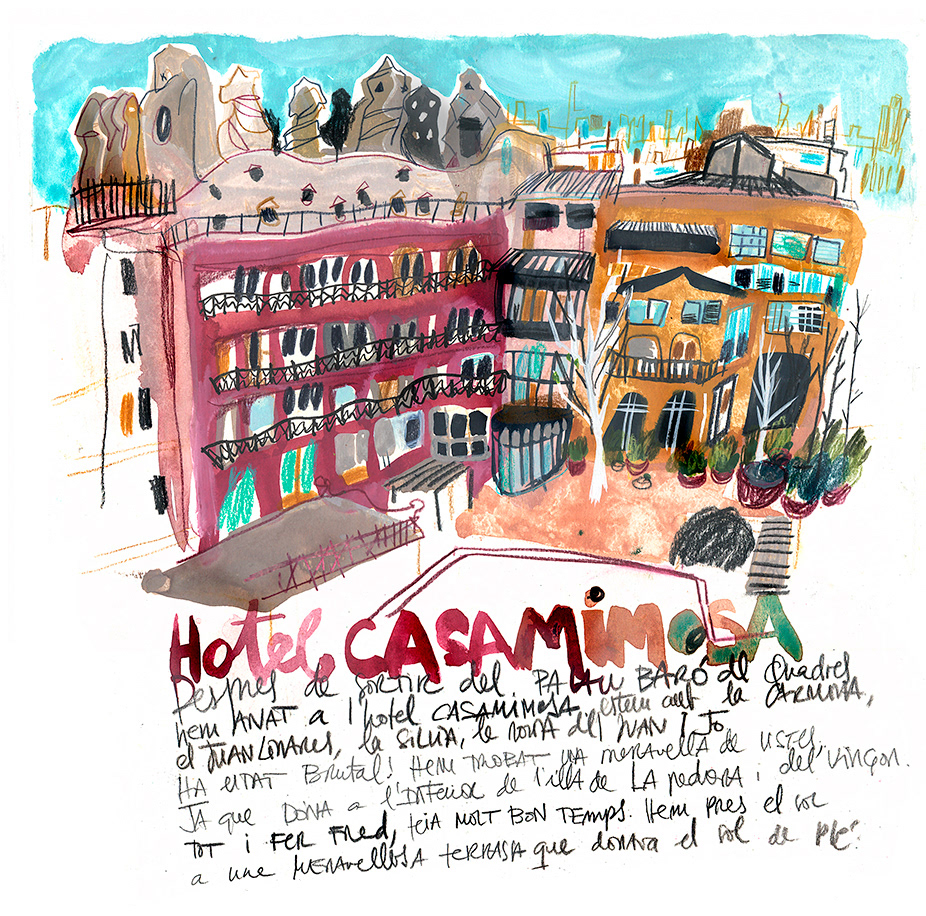 Hotel CASAMIMOSA
Despres de sortir del PALAU BARÓ de Quadres
hem ANAT a l'hotel CASAMIMOSA, estem amb la CARMINA,
el JUAN LINARES, la SILVIA, la DONA del JUAN I Jo
HA ESTAT Brutal! Hem TROBAT UNA meravella de VISTES,
JA que DONA a l'INTERIOR de l'illa de LA pedrera i del Vinçon.
TOT i FER FRED, feia MOLT BON TEMPS. Hem pres el sol
a una MERAVELLOSA terrassa que donava el sol de ple.